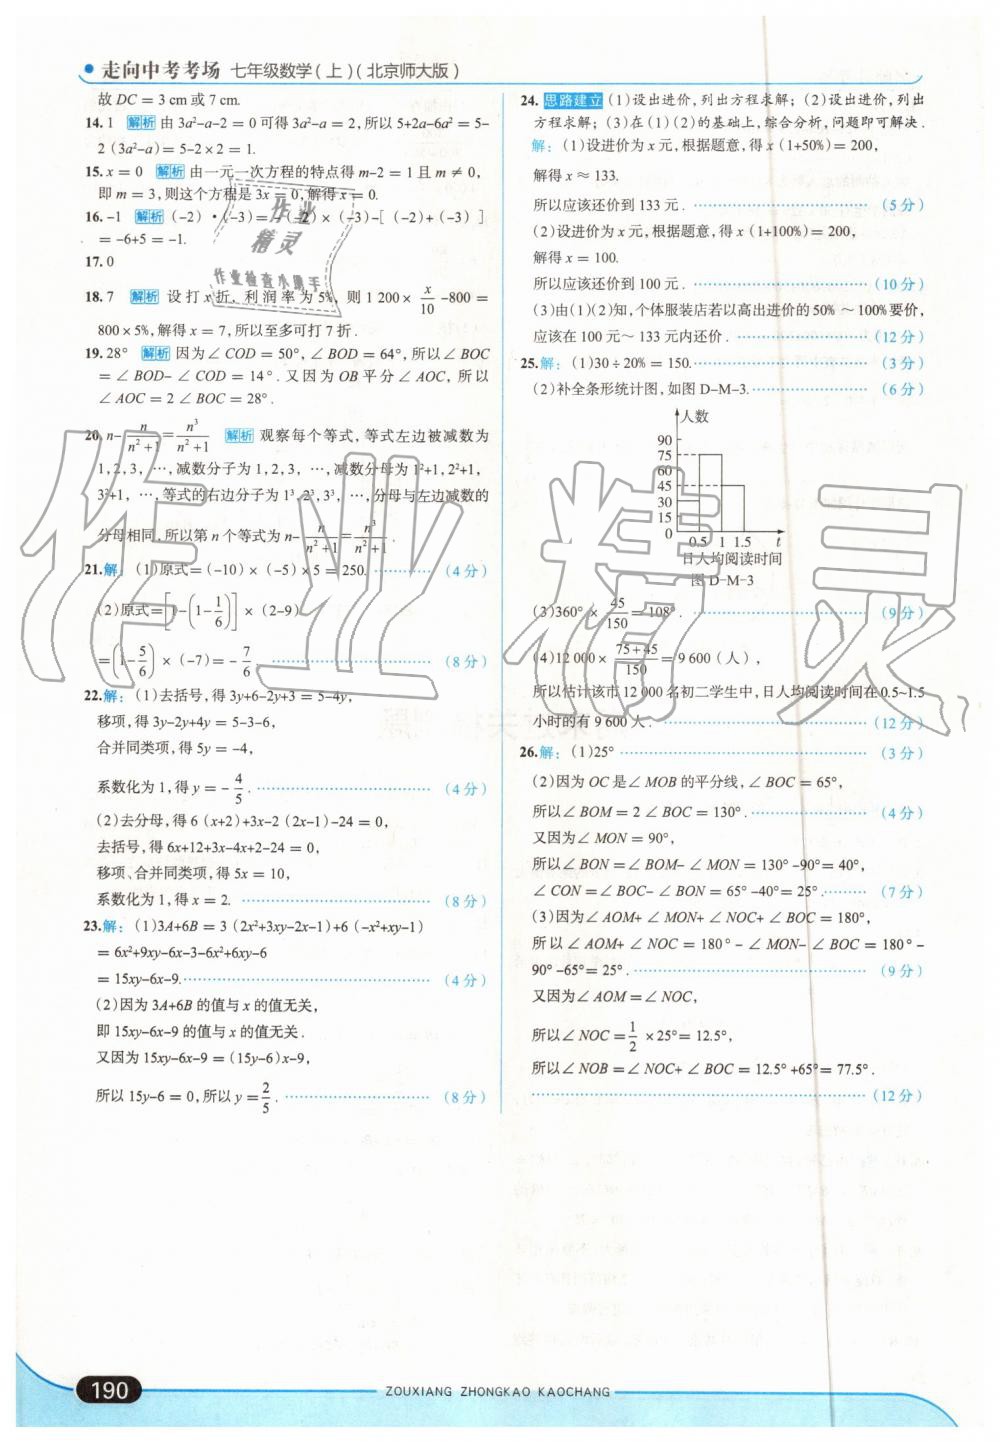 走向中考考场 七年级数学(上)(北京师大版)
故 DC = 3 cm 或 7 cm.
14. 1 解析 由 3a²-a-2 = 0 可得 3a²-a = 2,所以 5+2a-6a² = 5-
2(3a²-a) = 5-2×2 = 1.
15. x = 0 解析 由一元一次方程的特点得 m-2 = 1 且 m ≠ 0,
即 m = 3,则这个方程是 3x = 0,解得 x = 0.
16. -1 解析 (-2)·(-3) = (-2)×(-3)-[(-2)+(-3)]
= -6+5 = -1.
17. 0
18. 7 解析 设打 x 折, 利润率为 5%, 则 1 200× x/10 -800 =
800×5%,解得 x = 7,所以至多可打 7 折.
19. 28° 解析 因为∠COD = 50°,∠BOD = 64°,所以∠BOC
= ∠BOD-∠COD = 14°. 又因为 OB 平分∠AOC, 所以
∠AOC = 2∠BOC = 28°.
20. n- n/(n²+1) = n³/(n²+1) 解析 观察每个等式,等式左边被减数为
1,2,3,…,减数分子为 1,2,3,…,减数分母为 1²+1,2²+1,
3²+1,…,等式的右边分子为 1³,2³,3³,…,分母与左边减数的
分母相同,所以第 n 个等式为 n- n/(n²+1) = n³/(n²+1).
21. 解:(1)原式=(-10)×(-5)×5 = 250. (4分)
(2)原式=[1-(1-1/6)]×(2-9)
=(1-5/6)×(-7)= -7/6 (8分)
22. 解:(1)去括号,得 3y+6-2y+3 = 5-4y,
移项,得 3y-2y+4y = 5-3-6,
合并同类项,得 5y = -4,
系数化为 1,得 y = -4/5. (4分)
(2)去分母,得 6(x+2)+3x-2(2x-1)-24 = 0,
去括号,得 6x+12+3x-4x+2-24 = 0,
移项、合并同类项,得 5x = 10,
系数化为 1,得 x = 2. (8分)
23. 解:(1)3A+6B = 3(2x²+3xy-2x-1)+6(-x²+xy-1)
= 6x²+9xy-6x-3-6x²+6xy-6
= 15xy-6x-9. (4分)
(2)因为 3A+6B 的值与 x 的值无关,
即 15xy-6x-9 的值与 x 的值无关.
又因为 15xy-6x-9 = (15y-6)x-9,
所以 15y-6 = 0,所以 y = 2/5. (8分)
24. 思路建立 (1)设出进价,列出方程求解;(2)设出进价,列出
方程求解;(3)在(1)(2)的基础上,综合分析,问题即可解决.
解:(1)设进价为 x 元,根据题意,得 x(1+50%) = 200,
解得 x ≈ 133.
所以应该还价到 133 元. (5分)
(2)设进价为 x 元,根据题意,得 x(1+100%) = 200,
解得 x = 100.
所以应该还价到 100 元. (10分)
(3)由(1)(2)知,个体服装店若以高出进价的 50% ~ 100%要价,
应该在 100 元~ 133 元内还价. (12分)
25. 解:(1)30÷20% = 150. (3分)
(2)补全条形统计图,如图 D-M-3. (6分)
人数
90
75
60
45
30
15
0
0.5 1 1.5 t
日人均阅读时间
图 D-M-3
(3)360°× 45/150 = 108°. (9分)
(4)12 000× (75+45)/150 = 9 600(人),
所以估计该市 12 000 名初二学生中,日人均阅读时间在 0.5~1.5
小时的有 9 600 人. (12分)
26. 解:(1)25° (3分)
(2)因为 OC 是∠MOB 的平分线,∠BOC = 65°,
所以∠BOM = 2∠BOC = 130°. (4分)
又因为∠MON = 90°,
所以∠BON = ∠BOM-∠MON = 130°-90° = 40°,
∠CON = ∠BOC-∠BON = 65°-40° = 25°. (7分)
(3)因为∠AOM+∠MON+∠NOC+∠BOC = 180°,
所以∠AOM+∠NOC = 180°-∠MON-∠BOC = 180°-
90°-65° = 25°. (9分)
又因为∠AOM = ∠NOC,
所以∠NOC = 1/2 ×25° = 12.5°,
所以∠NOB = ∠NOC+∠BOC = 12.5°+65° = 77.5°.
(12分)
作业
精灵
作业检查小助手
作业精灵
190
ZOUXIANG ZHONGKAO KAOCHANG